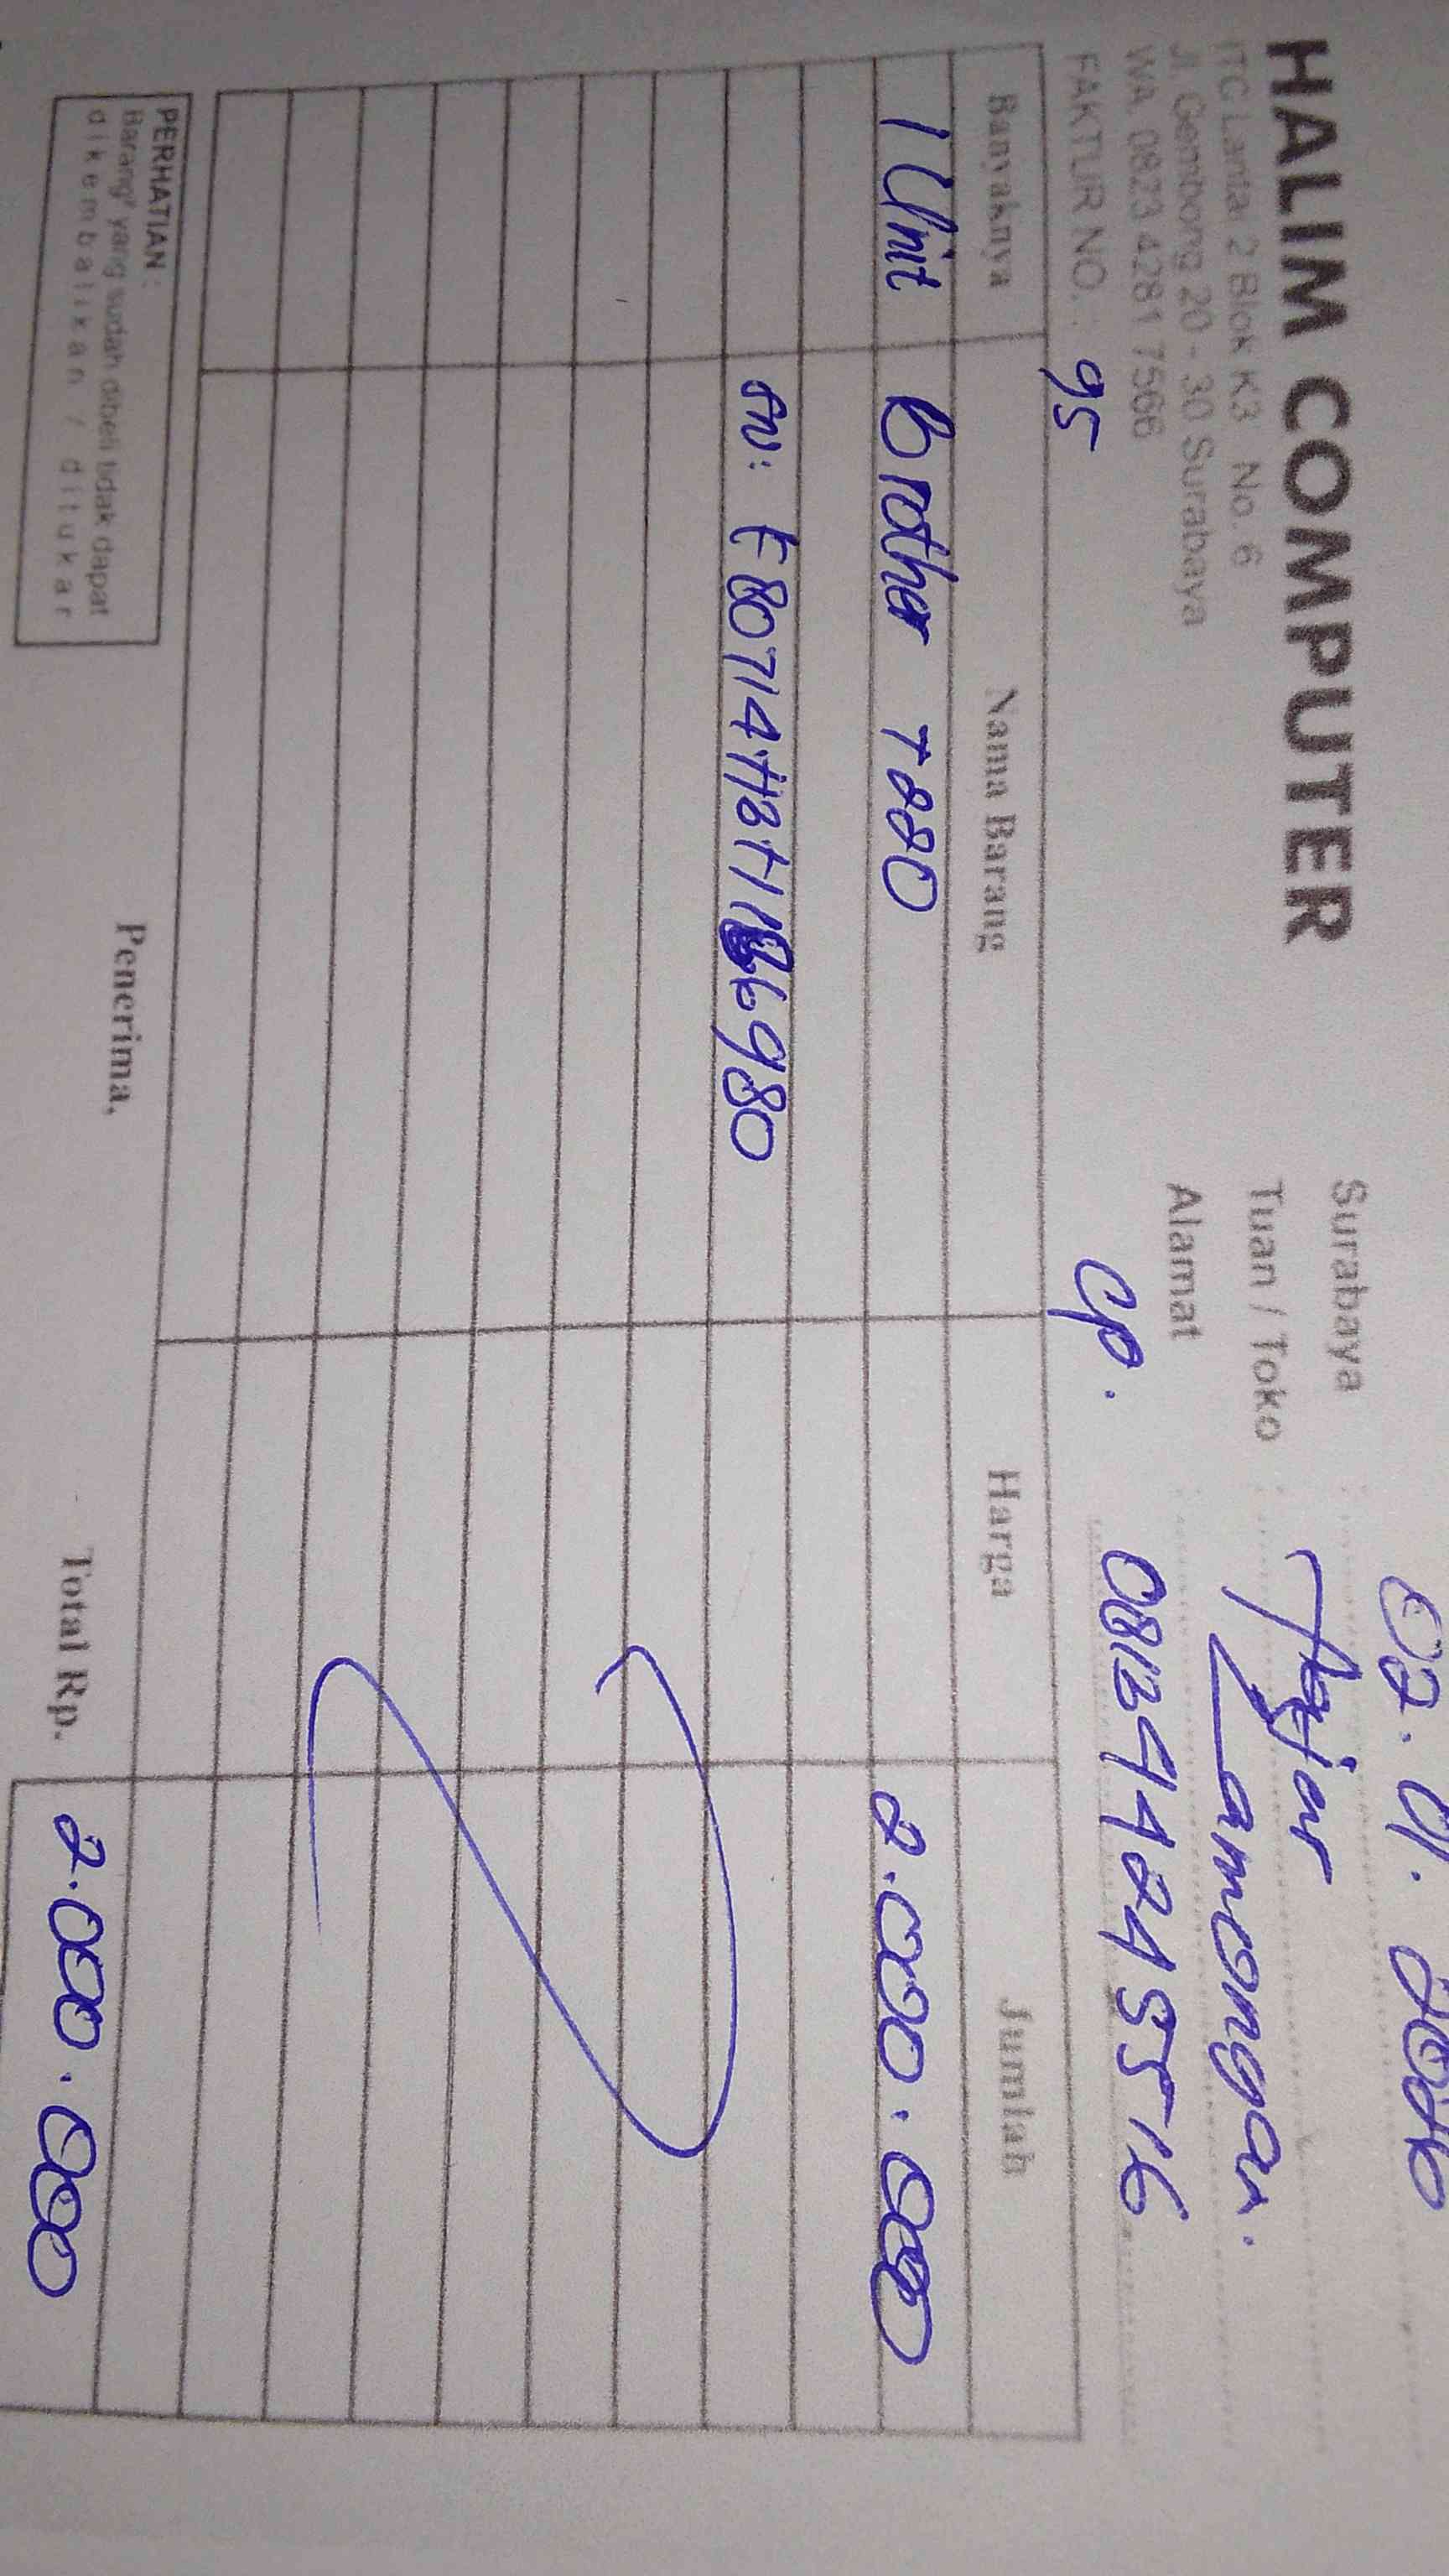 HALIM COMPUTER
ITC Lantai 2 Blok K3 No. 6
Jl. Gembong 20 - 30 Surabaya
WA. 0823 4281 7566
FAKTUR NO. : 95
Surabaya :
Tuan / Toko : Fajar
Alamat : Lamongan.
CP. 0813944245516
Banyaknya Nama Barang Harga Jumlah
1 Unit Brother T220 2.000.000
SN: E80714
2.000.000
Total Rp. 2.000.000
Penerima,
PERHATIAN :
Barang² yang sudah dibeli tidak dapat
dikembalikan / ditukar